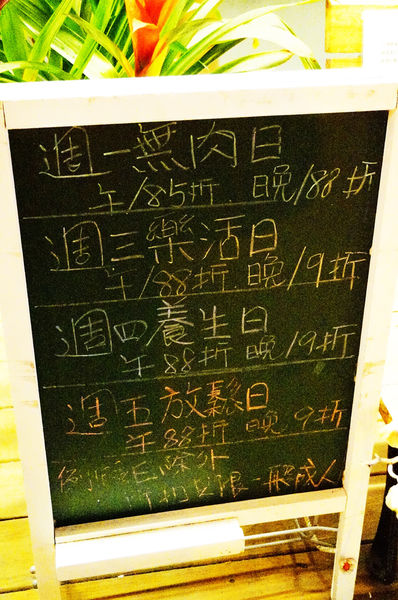 週一無肉日
午/85折. 晚/88折
週三樂活日
午/88折. 晚/9折
週四養生日
午 88折 晚/9折
週五放鬆日
午 88折 晚 9折
例假日除外
折扣只限一般成人